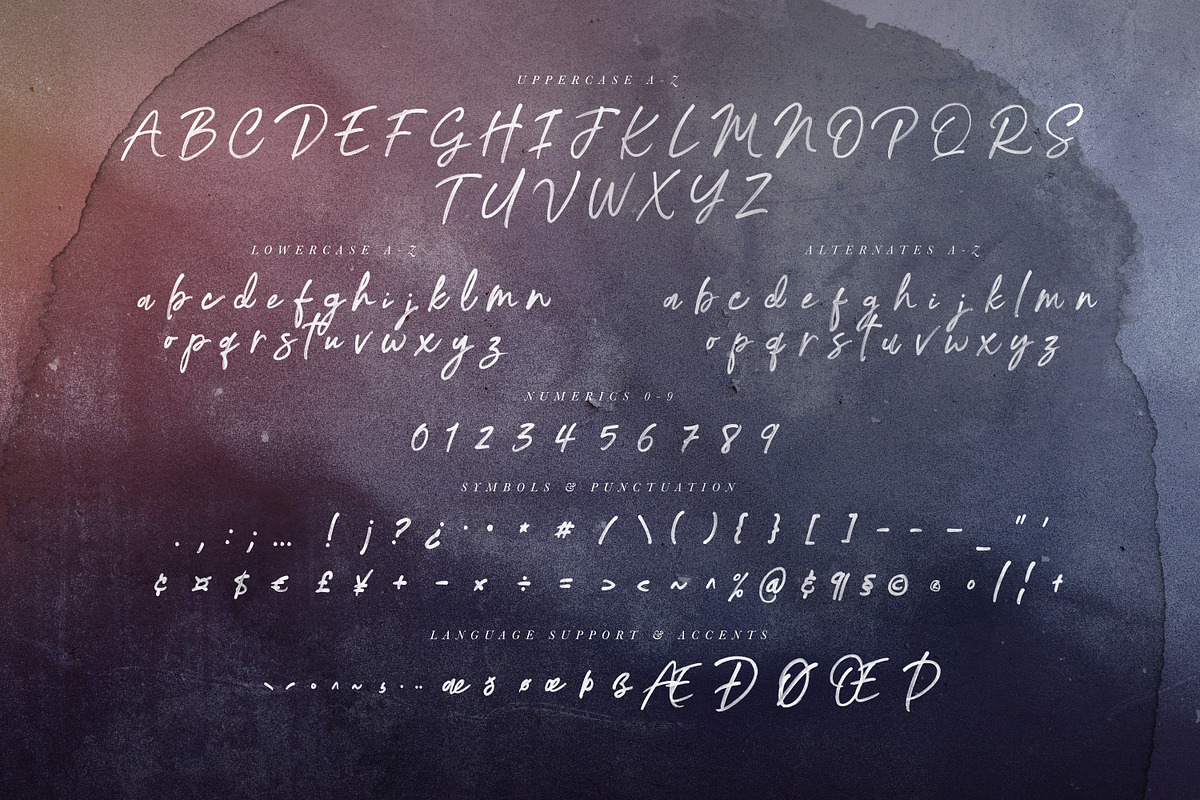 UPPERCASE A-Z
ABCDEFGHIJKLMNOPQRS
TUVWXYZ
LOWERCASE A-Z
abcdefghijklmn
opqrstuvwxyz
ALTERNATES A-Z
abcdefghijklmn
opqrstuvwxyz
NUMERICS 0-9
0123456789
SYMBOLS & PUNCTUATION
. , : ; … ! ¡ ? ¿ · • * # / \ ( ) { } [ ] - – — _ " '
¢ ¤ $ € £ ¥ + − × ÷ = > < ~ ^ % @ & ¶ § © ® ° | ¦ †
LANGUAGE SUPPORT & ACCENTS
` ´ ˚ ^ ~ ¸ · ¨ æ ð ø œ þ ß Æ Ð Ø Œ Þ